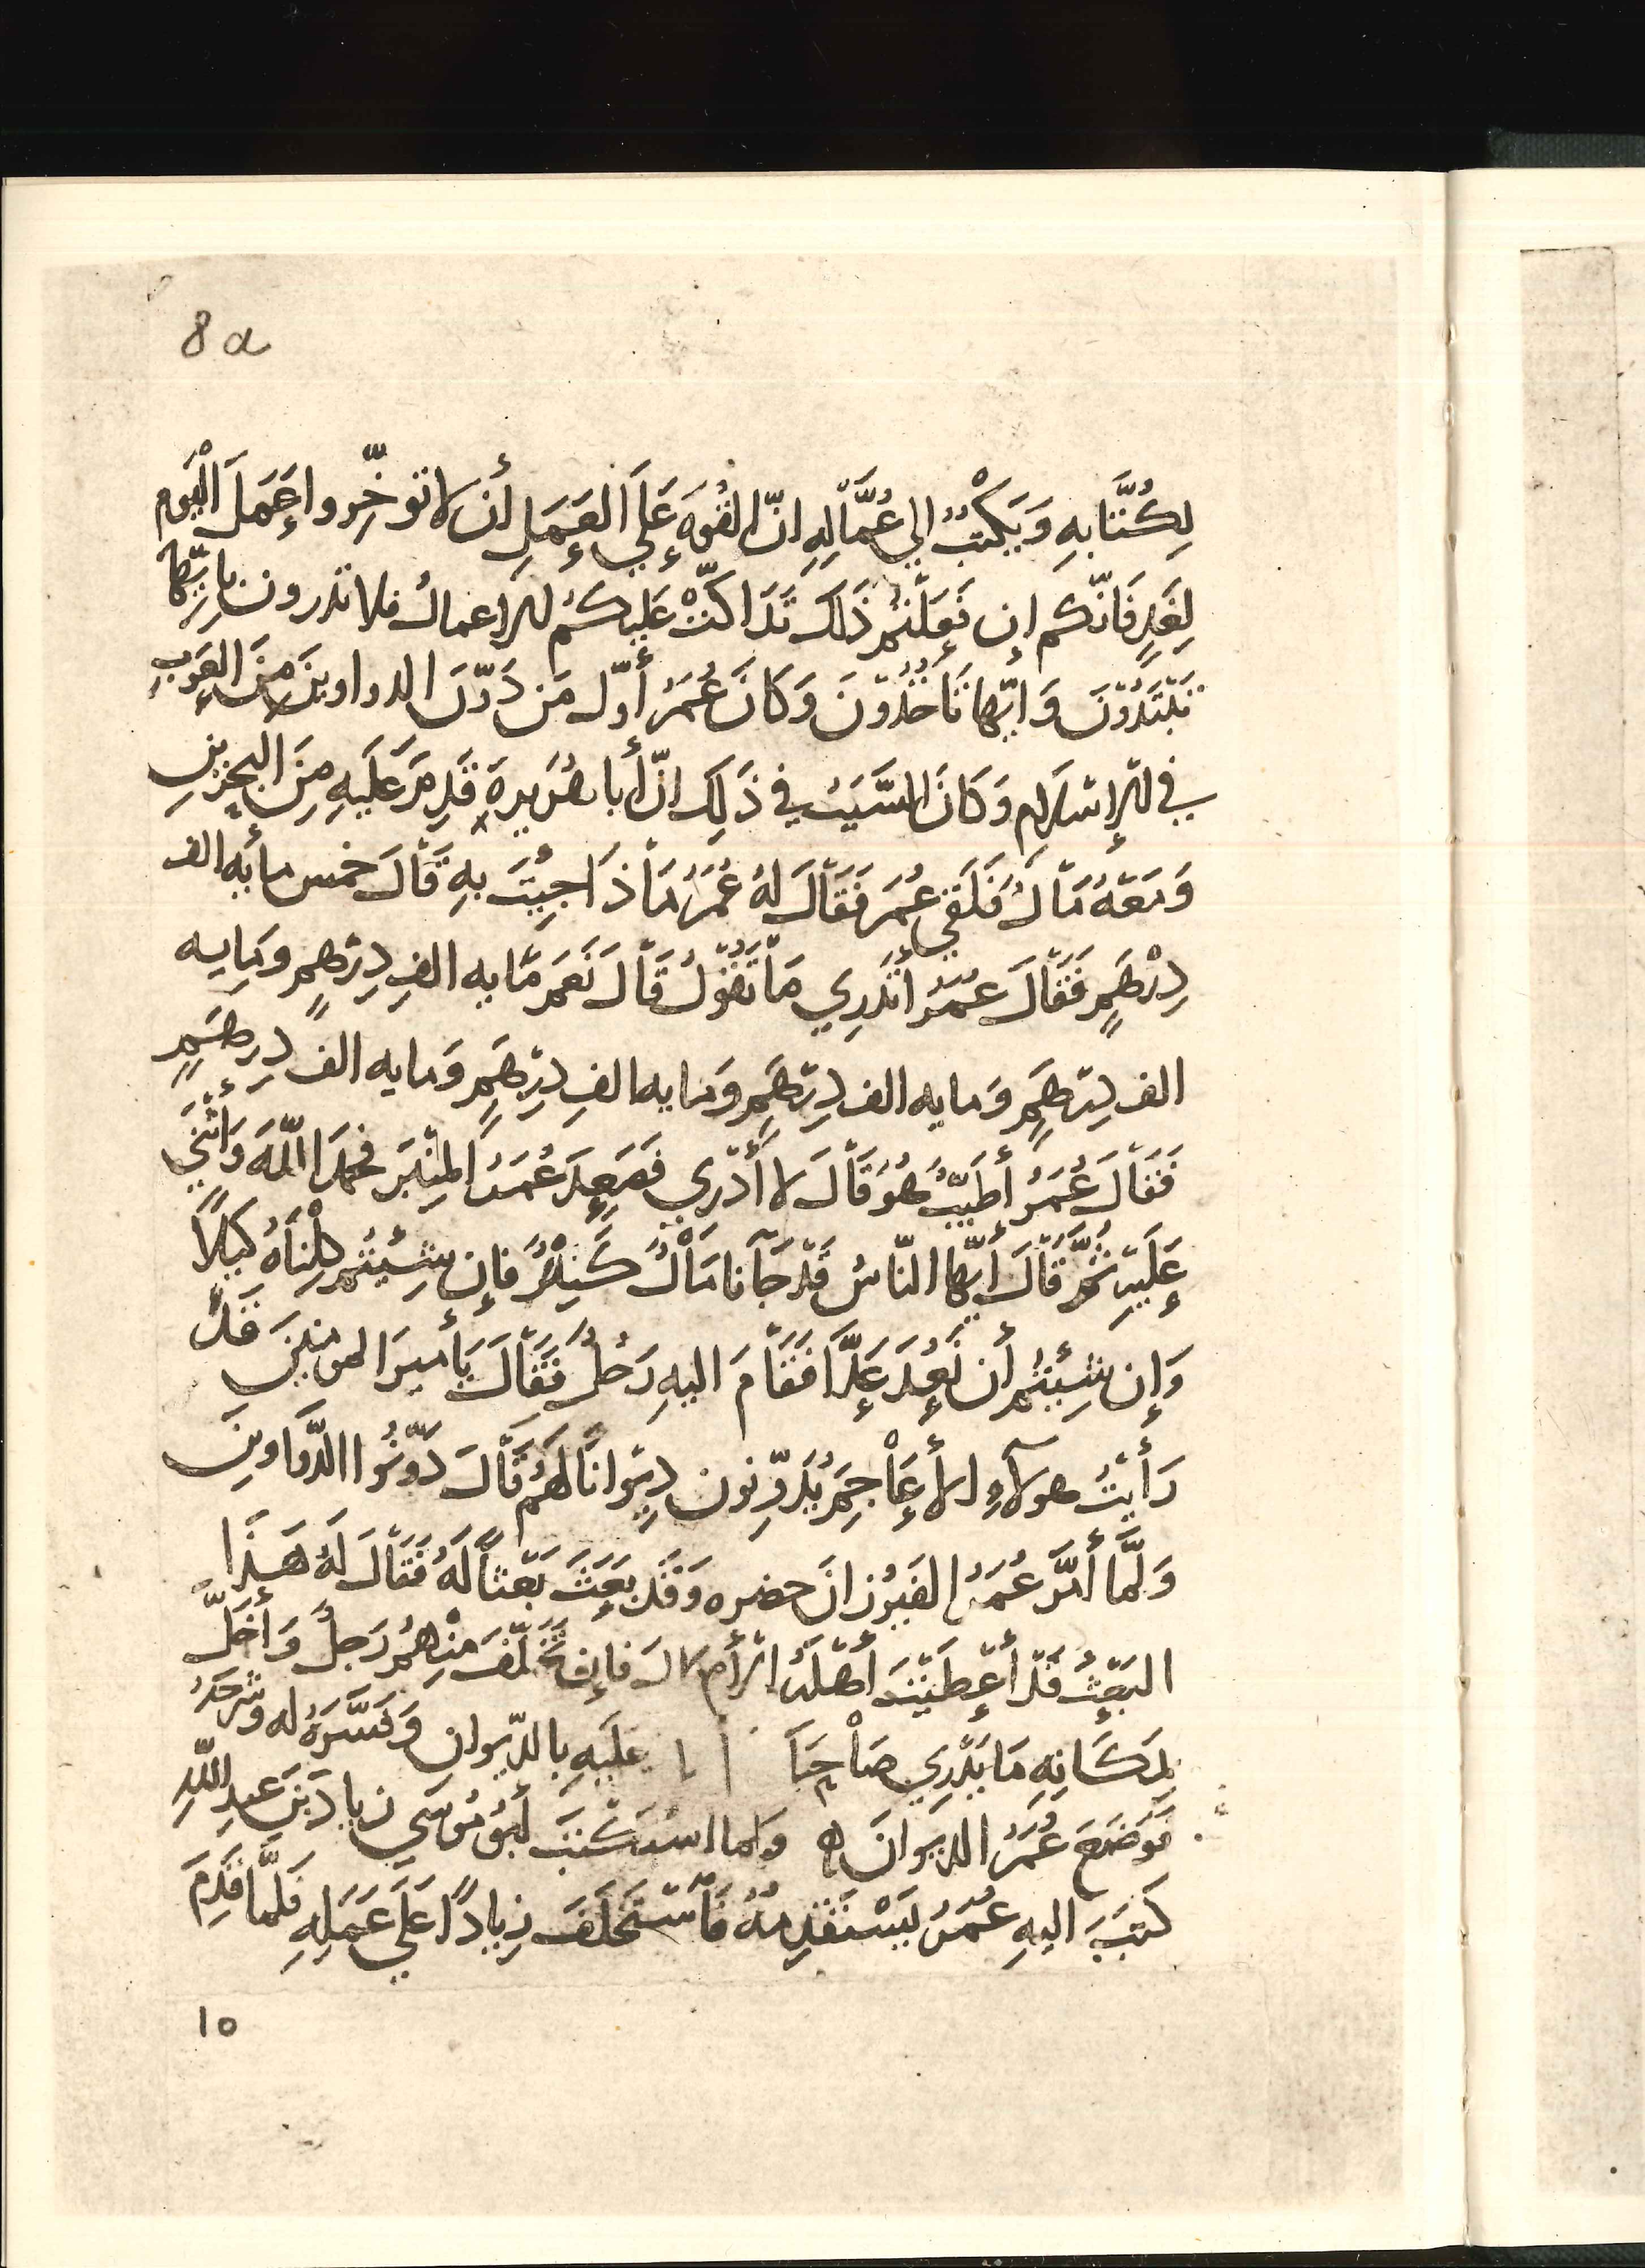 8a
لِكُتَّابِهِ وَيَكْتُبُ إلى عُمَّالِهِ انّ القُوّه عَلَى العَمَلِ أن لا تؤخِّروا عَمَلَ الْيَوم
لِغَدٍ فَانّكم إن فَعَلْتُم ذَلكَ تَدَاكّتْ عَلَيكُم الاعمالُ فلا تدرون بايّها
تَبْتَدُونَ وَايّها تَاخُذُونَ وَكَانَ عُمَرُ أوّل مَن دَوّنَ الدواوينَ مِنَ العَرَبِ
في الإسْلَامِ وَكَانَ السَّبَبُ في ذَلِكَ انّ أبا هُرَيرةَ قَدِمَ عَلَيهِ مِنَ البحرينِ
وَمَعَهُ مَالٌ فَلَقى عُمَرَ فَقَالَ لهُ عُمَرُ مَاذَا جِيْتَ بِهِ قَالَ خمس مأيه الف
دِرْهَمٍ فَقَالَ عُمَرُ أتَدرِي مَا تَقُولُ قَالَ نَعَم مَايه الفِ دِرْهمٍ ومَايه
الف دِرهَمٍ وَمايه الف دِرْهَمٍ وَمايه الفِ دِرْهَمٍ وَمايه الف دِرهَمٍ
فَقَالَ عُمَرُ أطَيّبٌ هُوَ قَالَ لا أدْرِي فَصَعِدَ عُمَرُ المِنْبَرَ فحمدَ اللّهَ وَأثْنَى
عَلَيهِ ثُمَّ قَالَ أيّها النّاسُ قَدْ جَآنا مَالٌ كَثِيرٌ فإن شِئْتُم كِلْنَاهُ كَيلاً
وَإن شِئْتُم أن نَعُدَ عَدَّا فَقَامَ اليهِ رَجُلٌ فَقَالَ يَأميرَ المومنينَ قَدْ
رَأيتُ هولآءِ الأعَاجِمَ يُدَوِّنون دِيْوانًا لهُم قَالَ دَوّنُوا الدَّوَاوينَ
وَلَمَّا أمَرَ عُمَرُ الفَيرُزانَ حضره وَقَد بَعَثَ بَعْثاً لَهُ فَقَالَ لَهُ هَذَا
البَعْثُ قَد أعْطَيْتَ أهْلَهُ الأموالَ فإن تَخَلّفَ مِنْهُم رَجلٌ وَأخَلَّ
بِمَكَانِهِ مَا يَدْرِي صَاحِبَا عَلَيهِ بالدّيوان وَفَسَّرَهُ له وشَرحَهُ
فَوَضَعَ عُمَرُ الديوانَ ه ولما استَكْتَبَ أبُو مُوسَى زيادَ بنَ عبدِ اللّهِ
كَتَبَ اليهِ عُمَرُ يَسْتَقْدِمُهُ فَأسْتَخلَفَ زِيادًا عَلَى عَمَلِهِ فَلَمَّا قَدِمَ
10